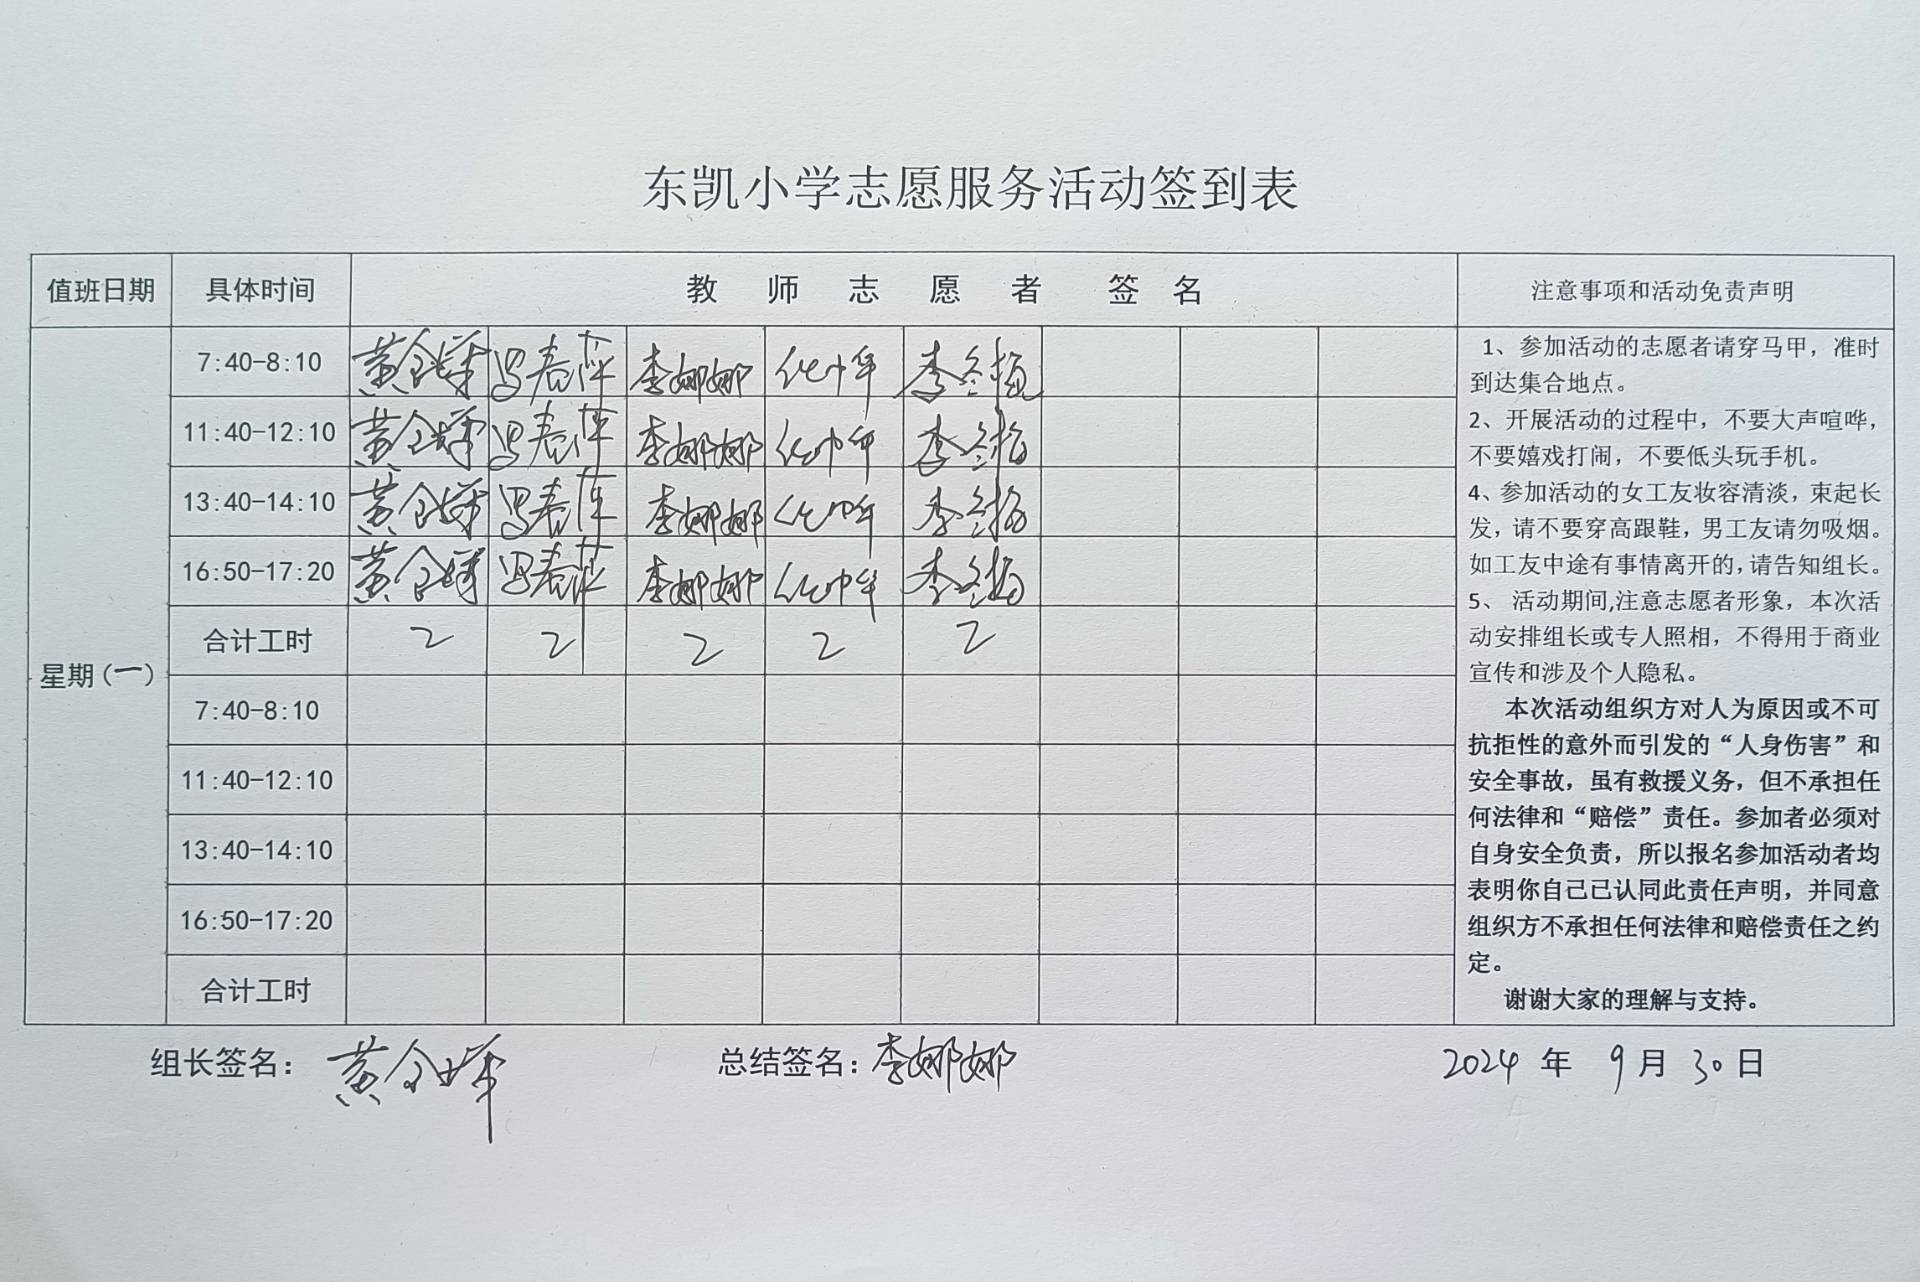 东凯小学志愿服务活动签到表
值班日期 具体时间 教师志愿者签名 注意事项和活动免责声明
星期(一)
7:40-8:10 李娜娜 李冬梅
11:40-12:10 李娜娜 李冬梅
13:40-14:10 李娜娜 李冬梅
16:50-17:20 李娜娜 李冬梅
合计工时 2 2 2 2 2
7:40-8:10
11:40-12:10
13:40-14:10
16:50-17:20
合计工时
1、参加活动的志愿者请穿马甲，准时
到达集合地点。
2、开展活动的过程中，不要大声喧哗，
不要嬉戏打闹，不要低头玩手机。
4、参加活动的女工友妆容清淡，束起长
发，请不要穿高跟鞋，男工友请勿吸烟。
如工友中途有事情离开的，请告知组长。
5、 活动期间,注意志愿者形象，本次活
动安排组长或专人照相，不得用于商业
宣传和涉及个人隐私。
本次活动组织方对人为原因或不可
抗拒性的意外而引发的“人身伤害”和
安全事故，虽有救援义务，但不承担任
何法律和“赔偿”责任。参加者必须对
自身安全负责，所以报名参加活动者均
表明你自己已认同此责任声明，并同意
组织方不承担任何法律和赔偿责任之约
定。
谢谢大家的理解与支持。
组长签名： 总结签名：李娜娜 2024 年 9 月 30 日